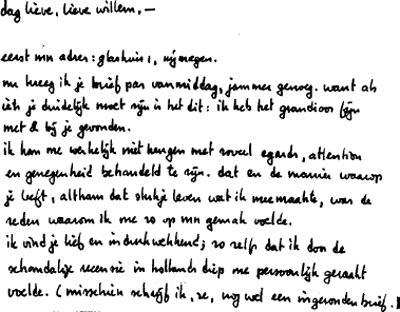 dag lieve, lieve willem, —
eerst mn adres: glashuis 1, nijmegen.
nu kreeg ik je brief pas vanmiddag, jammer genoeg. want als
iets je duidelijk moet zijn is het dit: ik heb het grandioos fijn
met & bij je gevonden.
ik kan me werkelijk niet heugen met zoveel egards, attention
en genegenheid behandeld te zijn. dat en de manier waarop
je leeft, althans dat stukje leven wat ik meemaakte, was de
reden waarom ik me zo op mn gemak voelde.
ik vind je lief en indrukwekkend; zo zelfs dat ik door de
schandalige recensie in hollands diep me persoonlijk geraakt
voelde. (misschien schrijf ik, ze, nog wel een ingezonden brief.